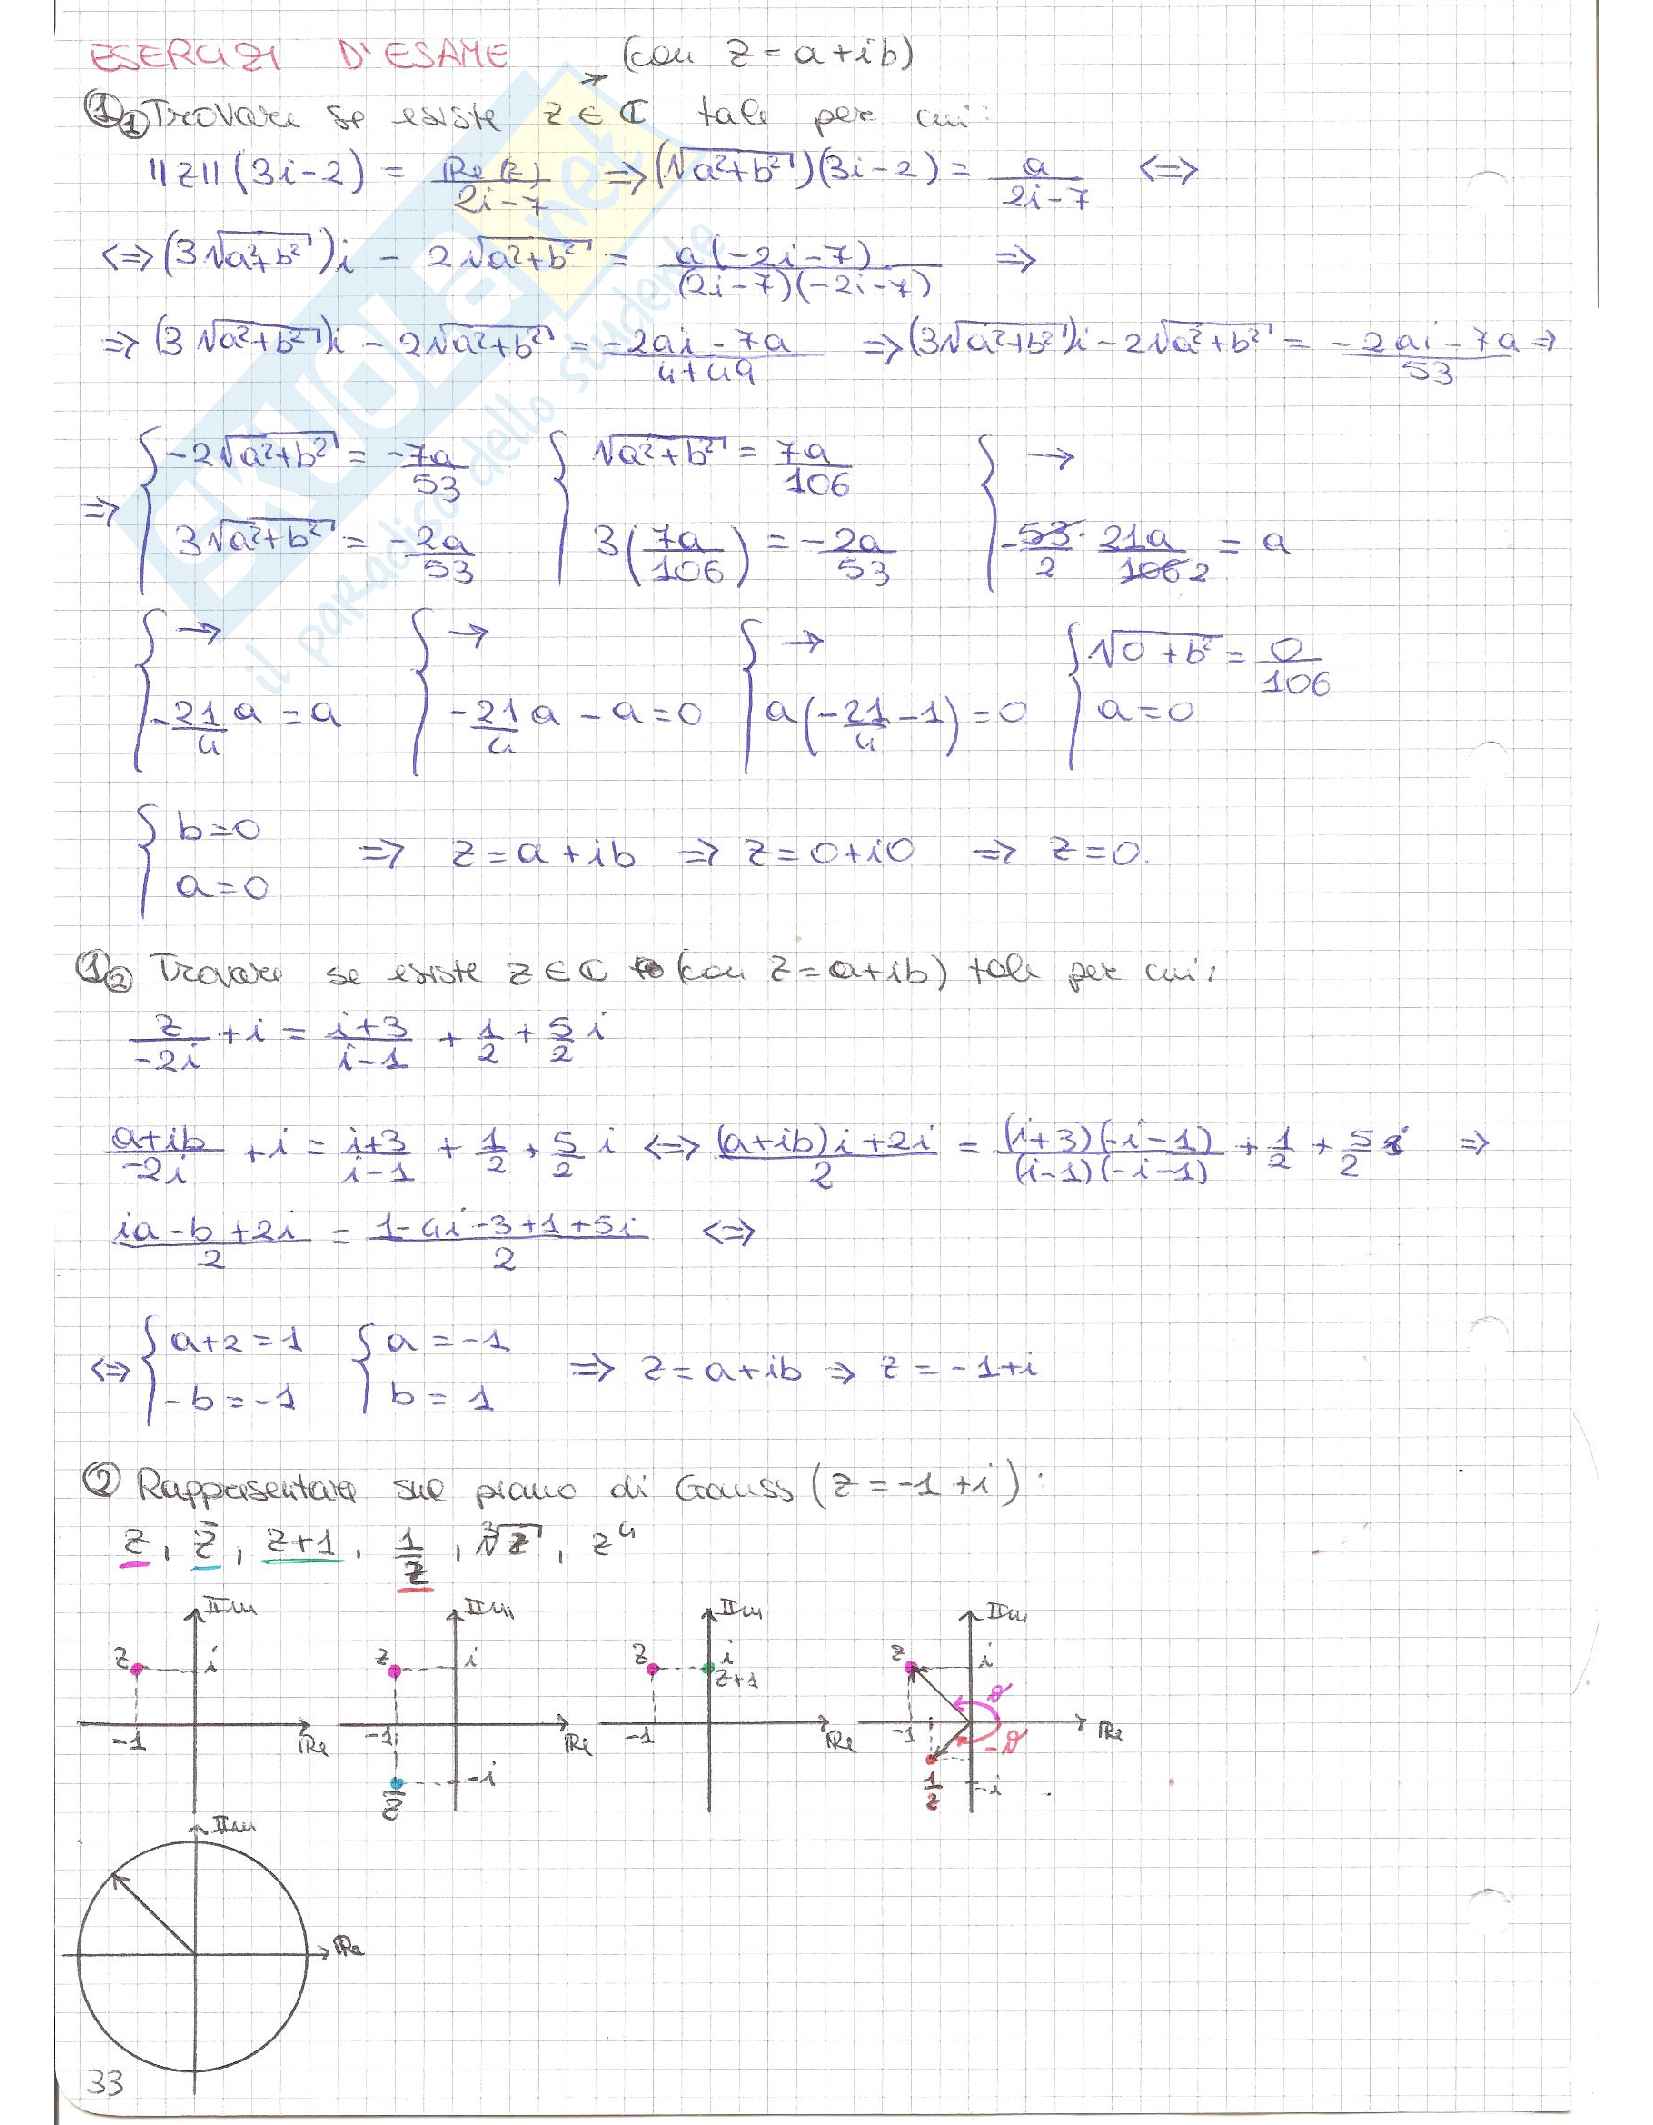 ESERCIZI D'ESAME (con z = a+ib)
①① Trovare se esiste z ∈ ℂ tale per cui:
||z||(3i-2) = Re(z)/(2i-7) ⇒ (√(a²+b²))(3i-2) = a/(2i-7) ⇔
⇔ (3√(a²+b²))i - 2√(a²+b²) = a(-2i-7)/((2i-7)(-2i-7)) ⇒
⇒ (3√(a²+b²))i - 2√(a²+b²) = (-2ai-7a)/(4+49) ⇒ (3√(a²+b²))i - 2√(a²+b²) = (-2ai-7a)/53 ⇒
⇒ { -2√(a²+b²) = -7a/53 { √(a²+b²) = 7a/106 { →
3√(a²+b²) = -2a/53 3(7a/106) = -2a/53 -53/2 · 21a/106 2 = a
{ → { → { → { √(0+b²) = 0/106
-21/4 a = a -21/4 a - a = 0 a(-21/4 - 1) = 0 a = 0
{ b=0
a=0 ⇒ z = a+ib ⇒ z = 0+i0 ⇒ z = 0.
①② Trovare se esiste z ∈ ℂ (con z = a+ib) tale per cui:
z/(-2i) + i = (i+3)/(i-1) + 1/2 + 5/2 i
(a+ib)/(-2i) + i = (i+3)/(i-1) + 1/2 + 5/2 i ⇔ ((a+ib)i+2i)/2 = (i+3)(-i-1)/((i-1)(-i-1)) + 1/2 + 5/2 i ⇒
(ia-b+2i)/2 = (1-4i-3+1+5i)/2 ⇔
⇔ { a+2 = 1 { a = -1 ⇒ z = a+ib ⇒ z = -1+i
-b = -1 b = 1
② Rappresentare sul piano di Gauss (z = -1+i):
z, z̄, z+1, 1/z, ∛z, z⁴
Im Im Im Im
z i z i z i z+1 z i θ
-1 Re -1 Re -1 Re -1 Re -θ
z̄ -i 1/z -i
Im
Re
33
SKUOLA.net
il paradiso dello studente